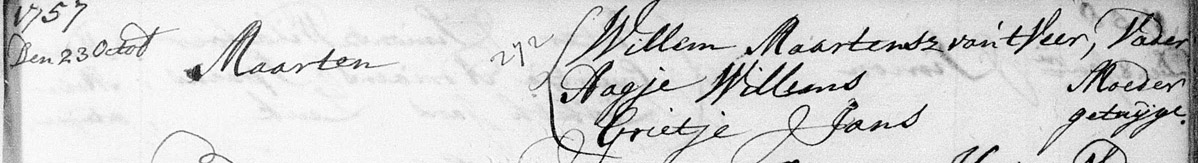 1757
Den 23 Octob Maarten 272 Willem Maartensz van't Veer, Vader
Aagje Willems Moeder
Grietje Jans getuyge.